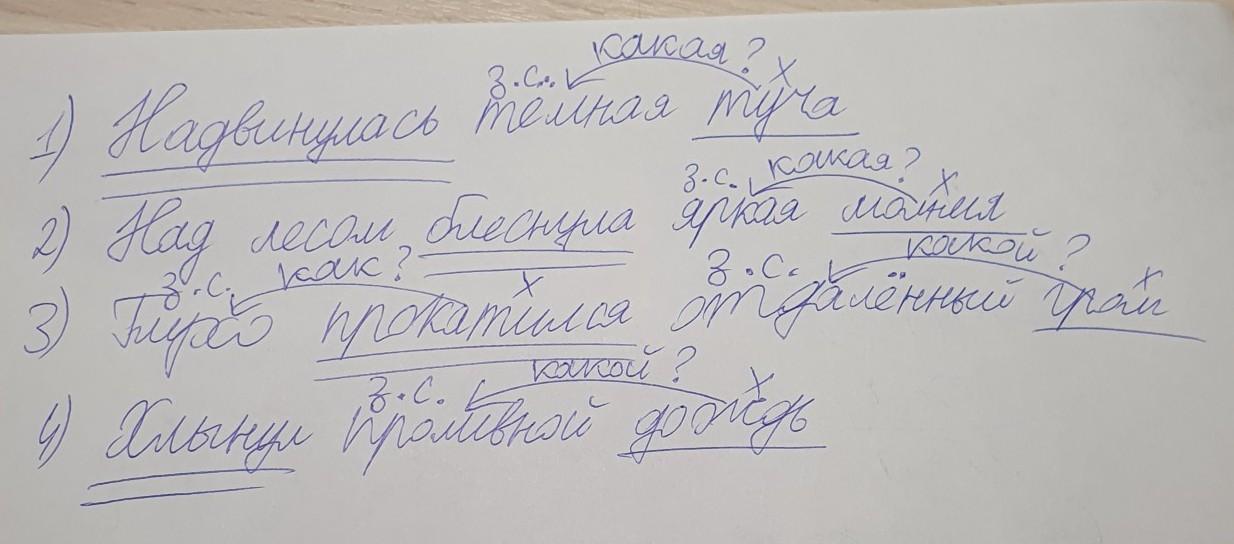 какая?
з.с. х
1) Надвинулась темная туча
з.с. какая? х
2) Над лесом блеснула яркая молния
з.с. как? х з.с. какой? х
3) Глухо прокатился отдалённый гром
з.с. какой? х
4) Хлынул проливной дождь